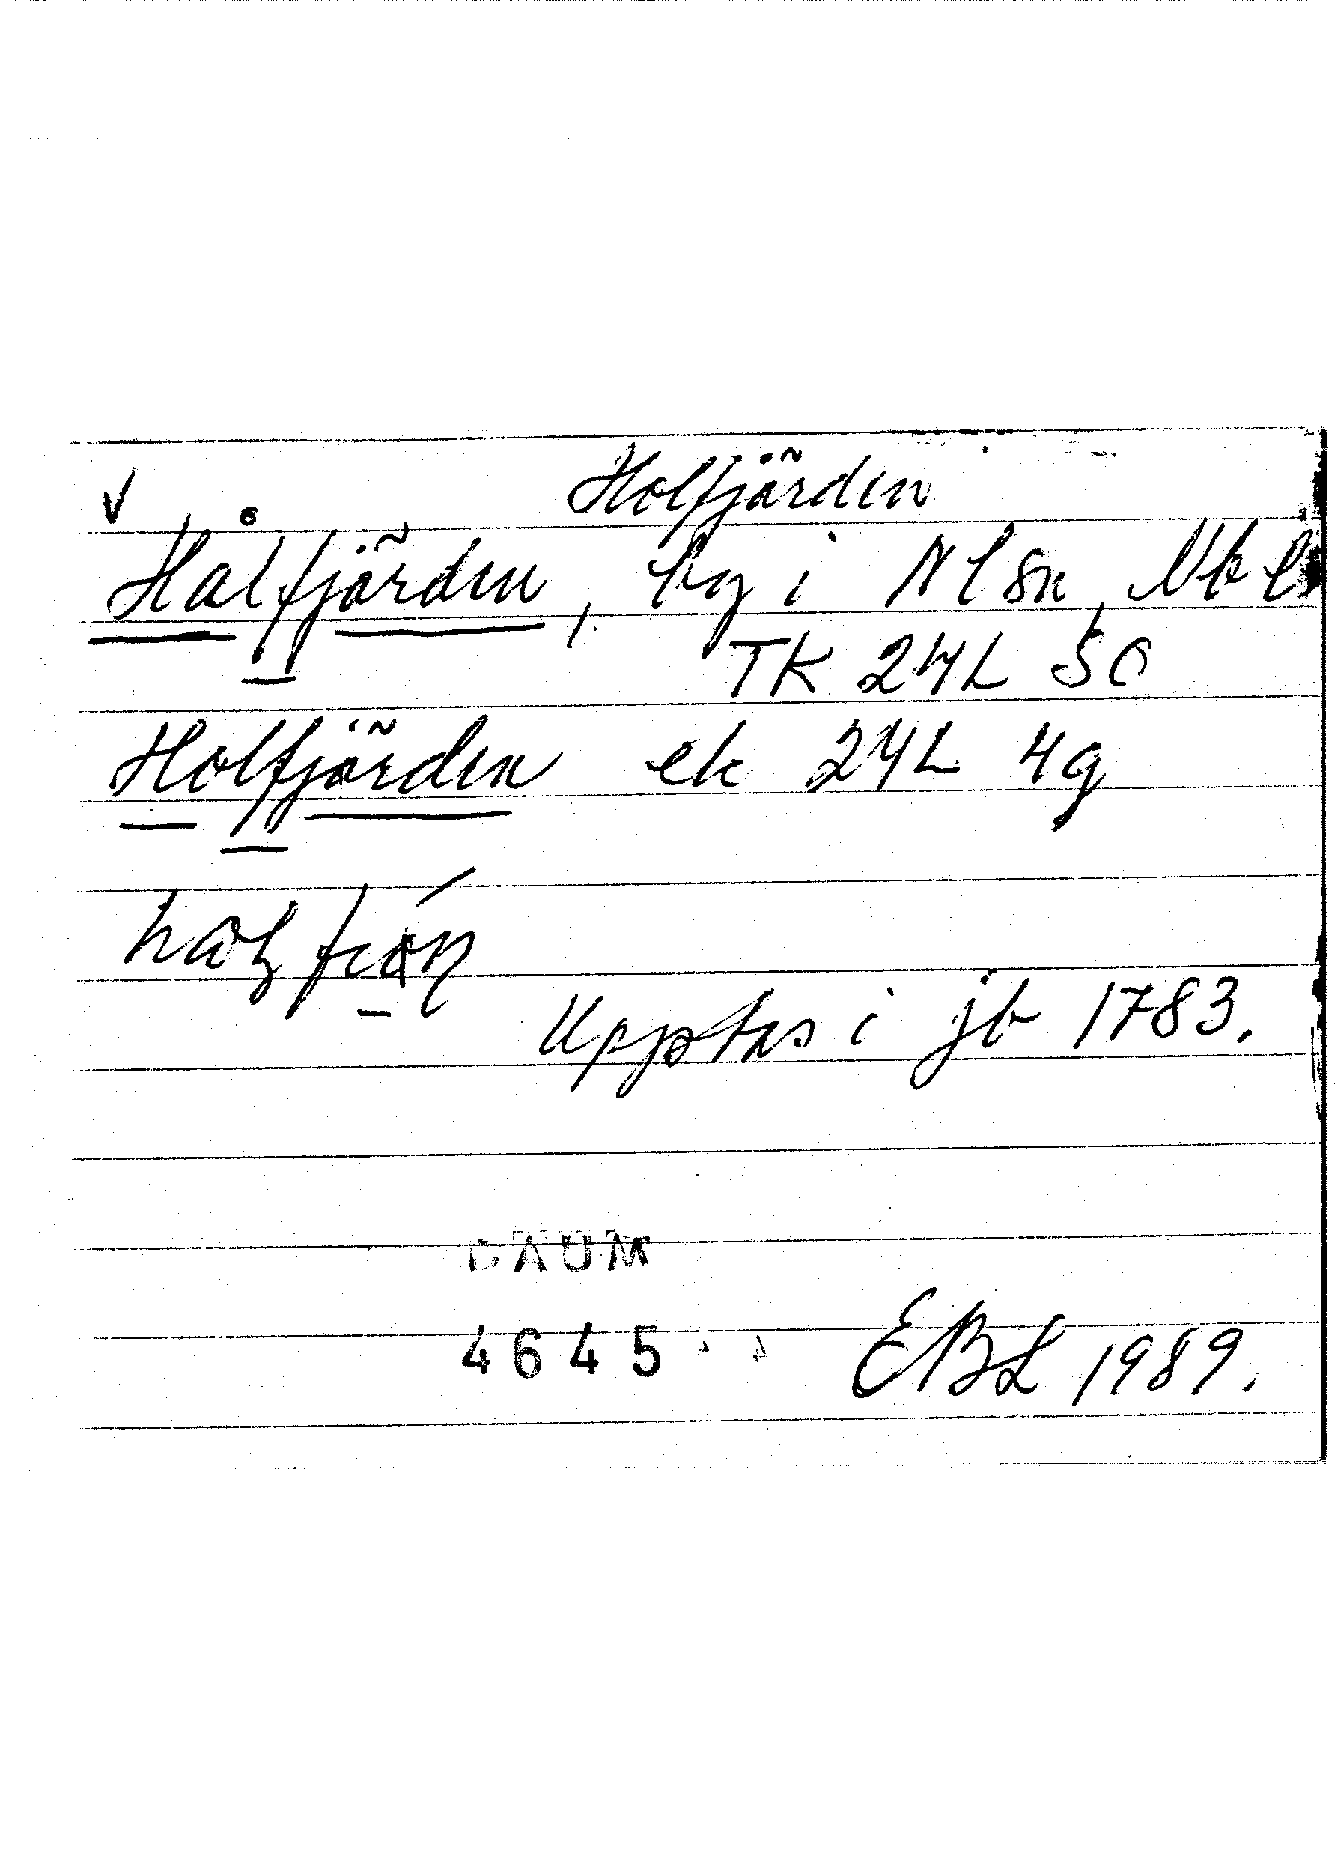 V Holfjärden
Hålfjärden, by i Nl sn, Vb l
TK 24L SO
Holfjärden ek 24L 4g
Upptas i jb 1783.
DAUM
4645
EBL 1989.